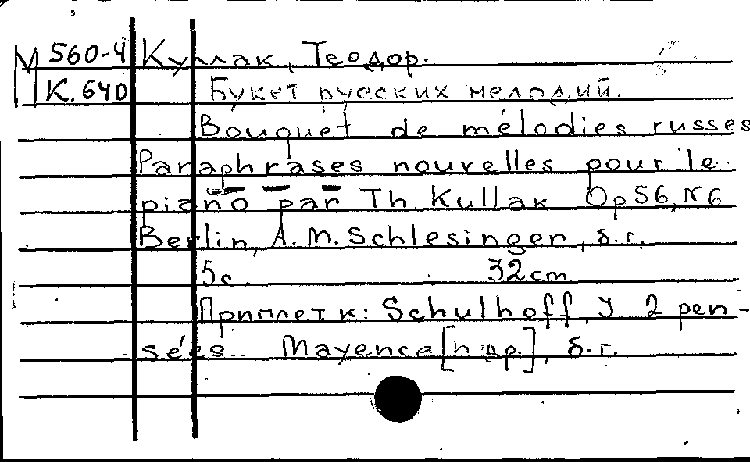 М 560-4 Куллак, Теодор.
К. 640 Букет русских мелодий.
Bouquet de mélodies russes
Paraphrases nouvelles pour le
piano par Th. Kullak Op 56, N6
Berlin, A. M. Schlesinger, б. г.
5с 32cm
Приплет к: Schulhoff, J 2 pen-
sées Mayence [и др.], б. г.